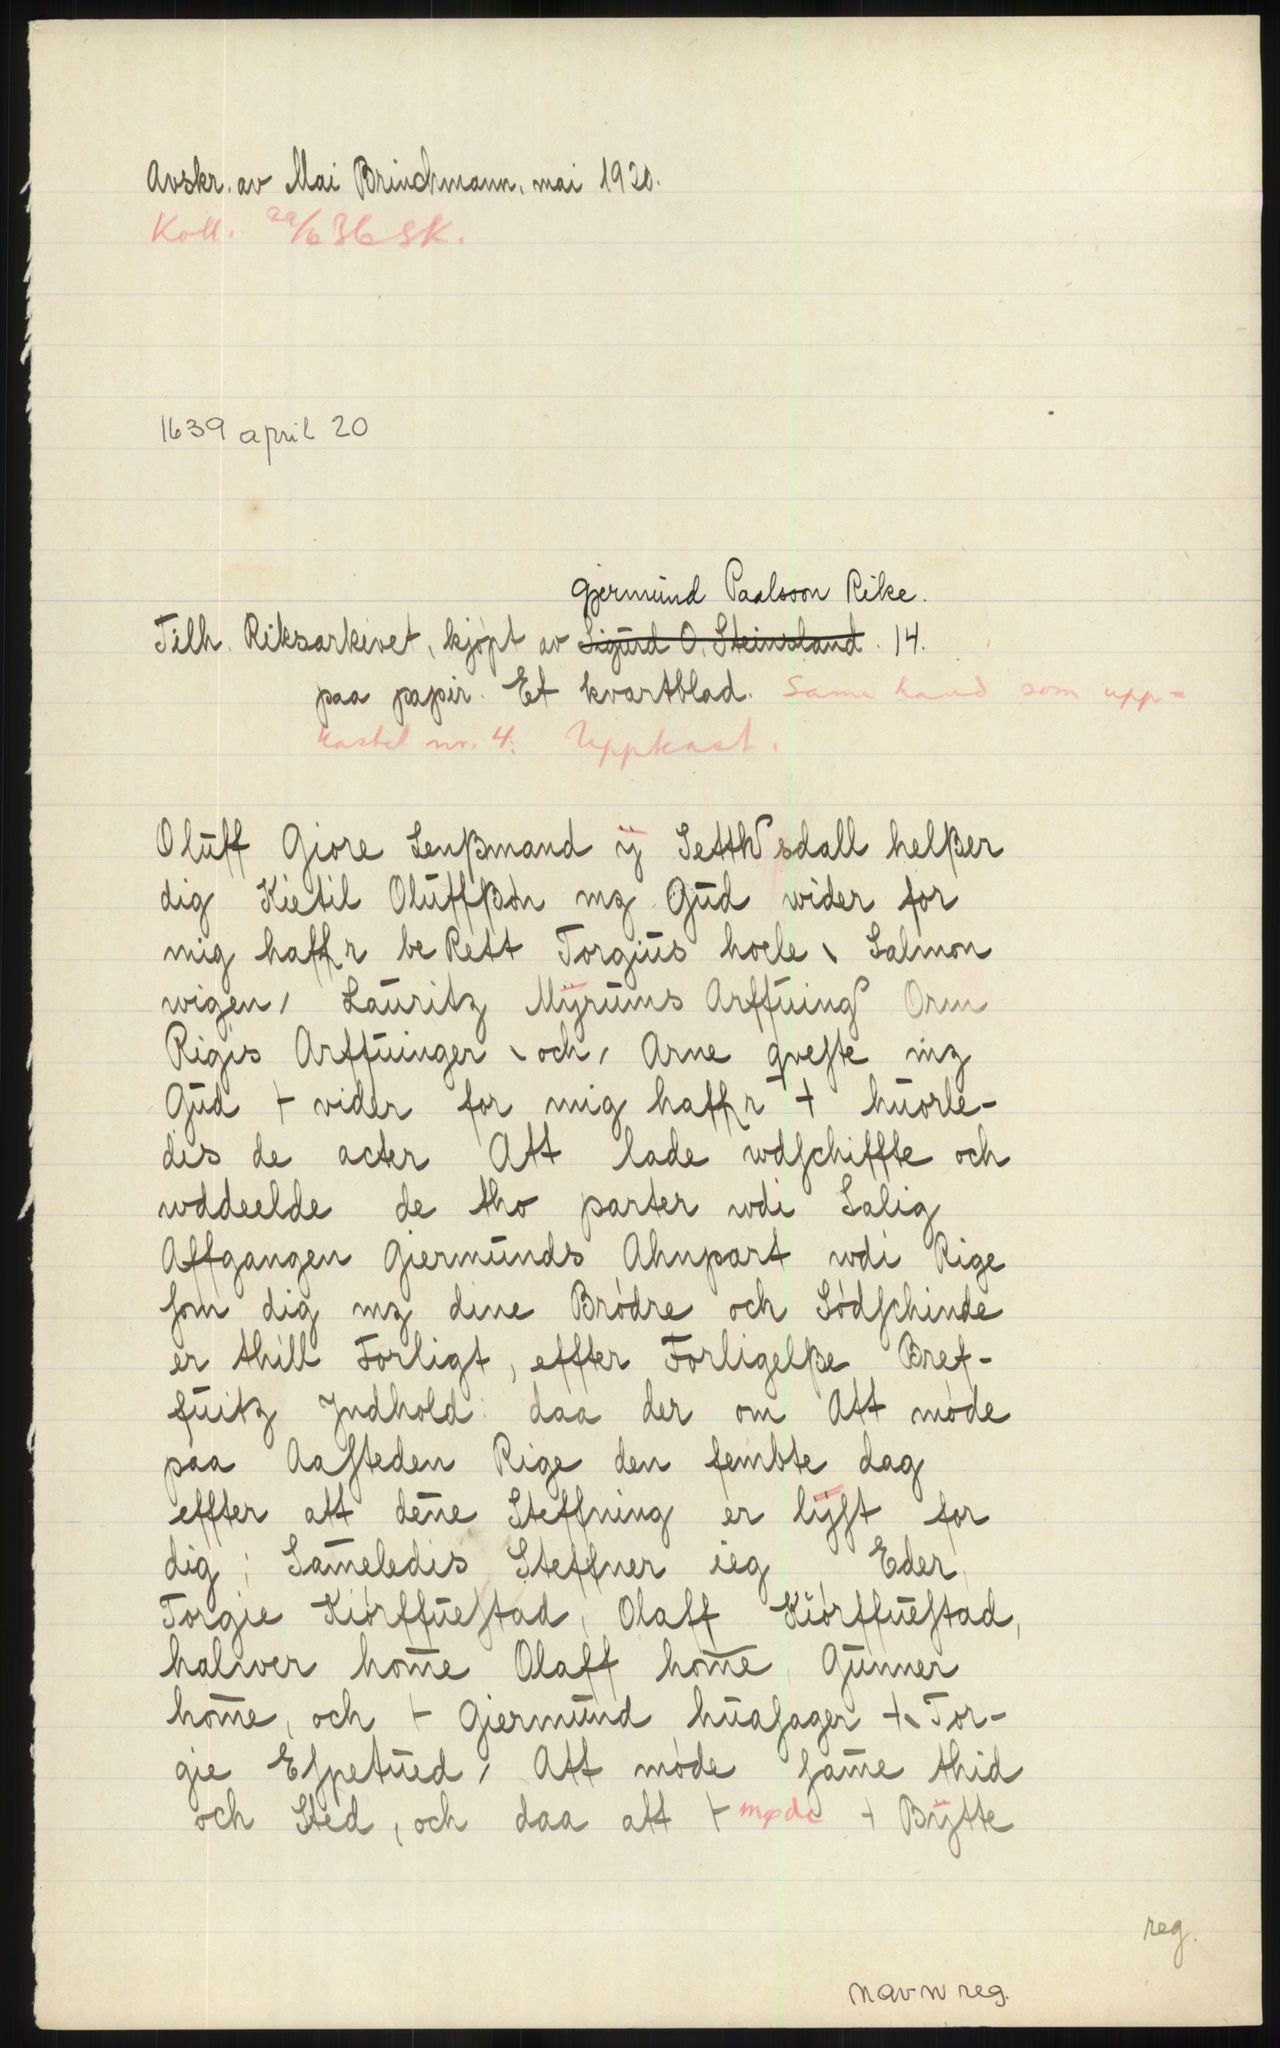 Avskr. av Mai Brinchmann, mai 1920.
Koll. 29/6 36 SK.
1639 april 20
Gjermund Paalsson Rike.
Tilh. Riksarkivet, kjøpt av Sigurd O. Steinsland. 14.
paa papir. Et kvartblad. Same hand som upp-
kastet nr. 4. Uppkast.
Oluff Giore Lenßmand ÿ Setthsdall helßer
dig Kietil Oluffßøn mz Gud wider for
mig haffr be Rett Torgius hoele, Salmon
wigen, Lauritz Mÿrums Arffuing Orm
Rigis Arffuinger, och, Arne qveste mz
Gud ⊢ vider for mig haffr + huorle-
dis de acter Att lade wdschiffte och
wddeelde de tho parter wdi Salig
Affgangen Giermunds Ahnpart wdi Rige
som dig mz dine Brødre och Södschinde
er thill Forligt, effter Forligelße Bref-
fuitz Jndhold: daa der om Att møde
paa Aasteden Rige den fembte dag
effter att dene Steffning er lÿst for
dig; Sameledis Steffner ieg Eder
Torgie Kiörffuestad, Olaff Kiörffuestad,
haluer home Olaff home, Gunner
home, och ⊢ Giermund huasager +, Tor-
gie Espetued, Att møde same thid
och Sted, och daa att ⊢ møde + Bÿtte
reg.
navn reg.